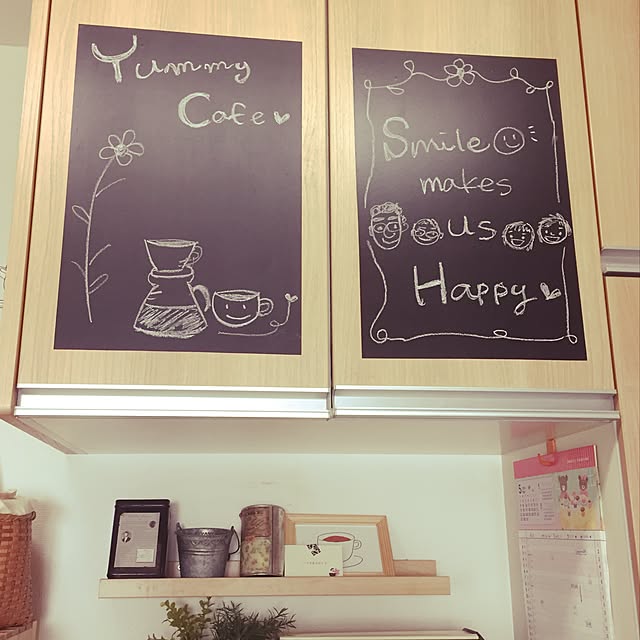 Yummy
Cafe
Smile
makes
us
Happy